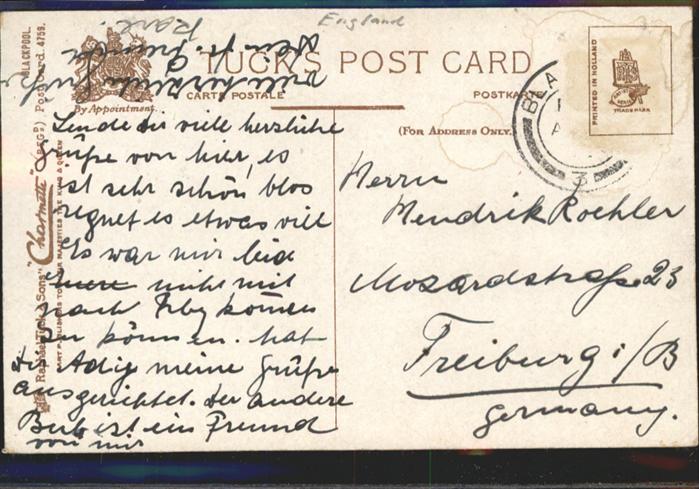 England
TUCK'S POST CARD
By Appointment.
CARTE POSTALE
POSTKARTE
(FOR ADDRESS ONLY.)
PRINTED IN HOLLAND
TRADE MARK
3
BLACKPOOL.
Raphael Tuck & Sons' "Charmette" (REGD) Postcard 4759.
ART PUBLISHERS TO THEIR MAJESTIES THE KING & QUEEN
Sende dir viele herzliche
Grüße von hier, es
ist sehr schön blos
regnet es etwas viel
Es war mir leid
nicht mit
nach kommen
zu können. hat
Dir meine Grüße
ausgerichtet. Der andere
Bub ist ein Freund
von mir
Dein Freund
Karl.
Herrn
Hendrik Roehler
Mozardstraße 23
Freiburg i/B
Germany.